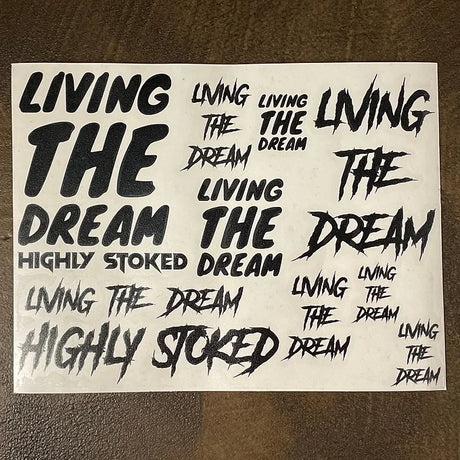 LIVING
THE
DREAM
HIGHLY STOKED
LIVING
THE
DREAM
LIVING
THE
DREAM
LIVING
THE
DREAM
LIVING
THE
DREAM
LIVING THE DREAM
HIGHLY STOKED
LIVING
THE
DREAM
LIVING
THE
DREAM
LIVING
THE
DREAM